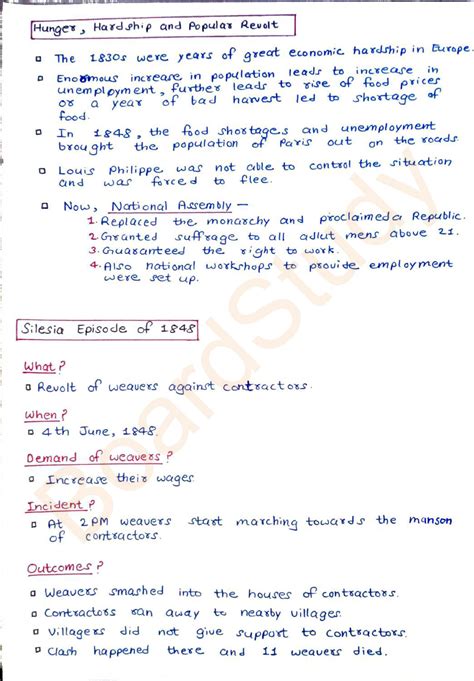 Hunger, Hardship and Popular Revolt
▫ The 1830s were years of great economic hardship in Europe.
▫ Enormous increase in population leads to increase in
unemployment, further leads to rise of food prices
or a year of bad harvest led to shortage of
food.
▫ In 1848, the food shortages and unemployment
brought the population of Paris out on the roads.
▫ Louis Philippe was not able to control the situation
and was forced to flee.
▫ Now, National Assembly —
1. Replaced the monarchy and proclaimed a Republic.
2. Granted suffrage to all adlut mens above 21.
3. Guaranteed the right to work.
4. Also national workshops to provide employment
were set up.
Silesia Episode of 1848
What?
▫ Revolt of weavers against contractors.
When?
▫ 4th June, 1848.
Demand of weavers?
▫ Increase their wages.
Incident?
▫ At 2 PM weavers start marching towards the manson
of contractors.
Outcomes?
▫ Weavers smashed into the houses of contractors.
▫ Contractors ran away to nearby villages.
▫ Villagers did not give support to contractors.
▫ Clash happened there and 11 weavers died.
BoardStudy